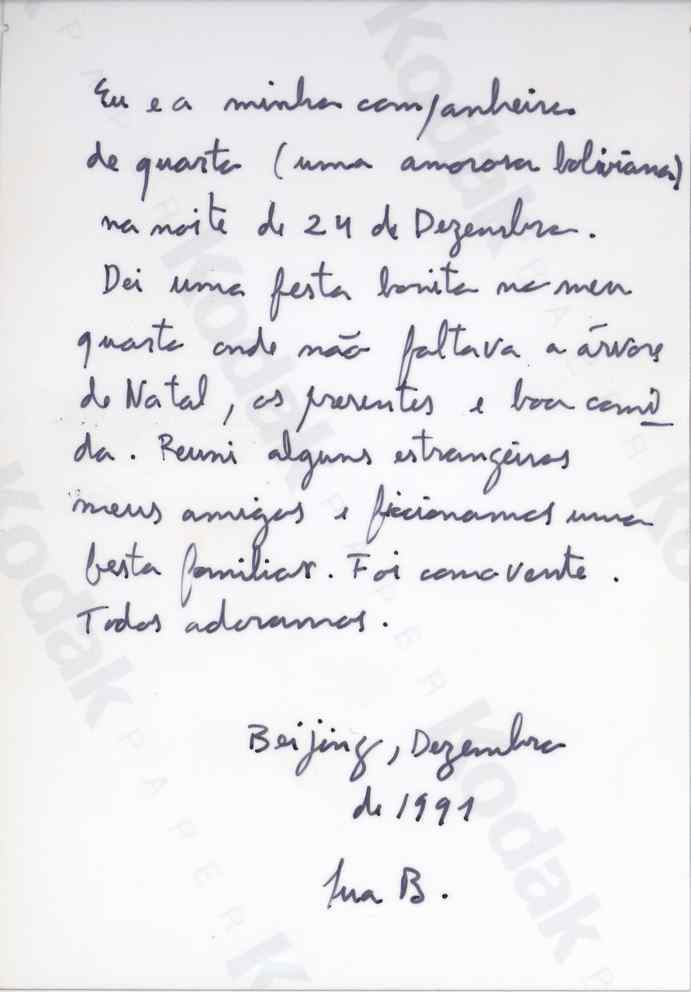 Eu e a minha companheira
de quarto (uma amorosa boliviana)
na noite de 24 de Dezembro.
Dei uma festa bonita no meu
quarto onde não faltava a árvore
de Natal, os presentes e boa comi
da. Reuni alguns estrangeiros
meus amigos e ficionamos uma
festa familiar. Foi comovente.
Todos adoramos.
Beijing, Dezembro
de 1991
B.
Kodak
PAPER